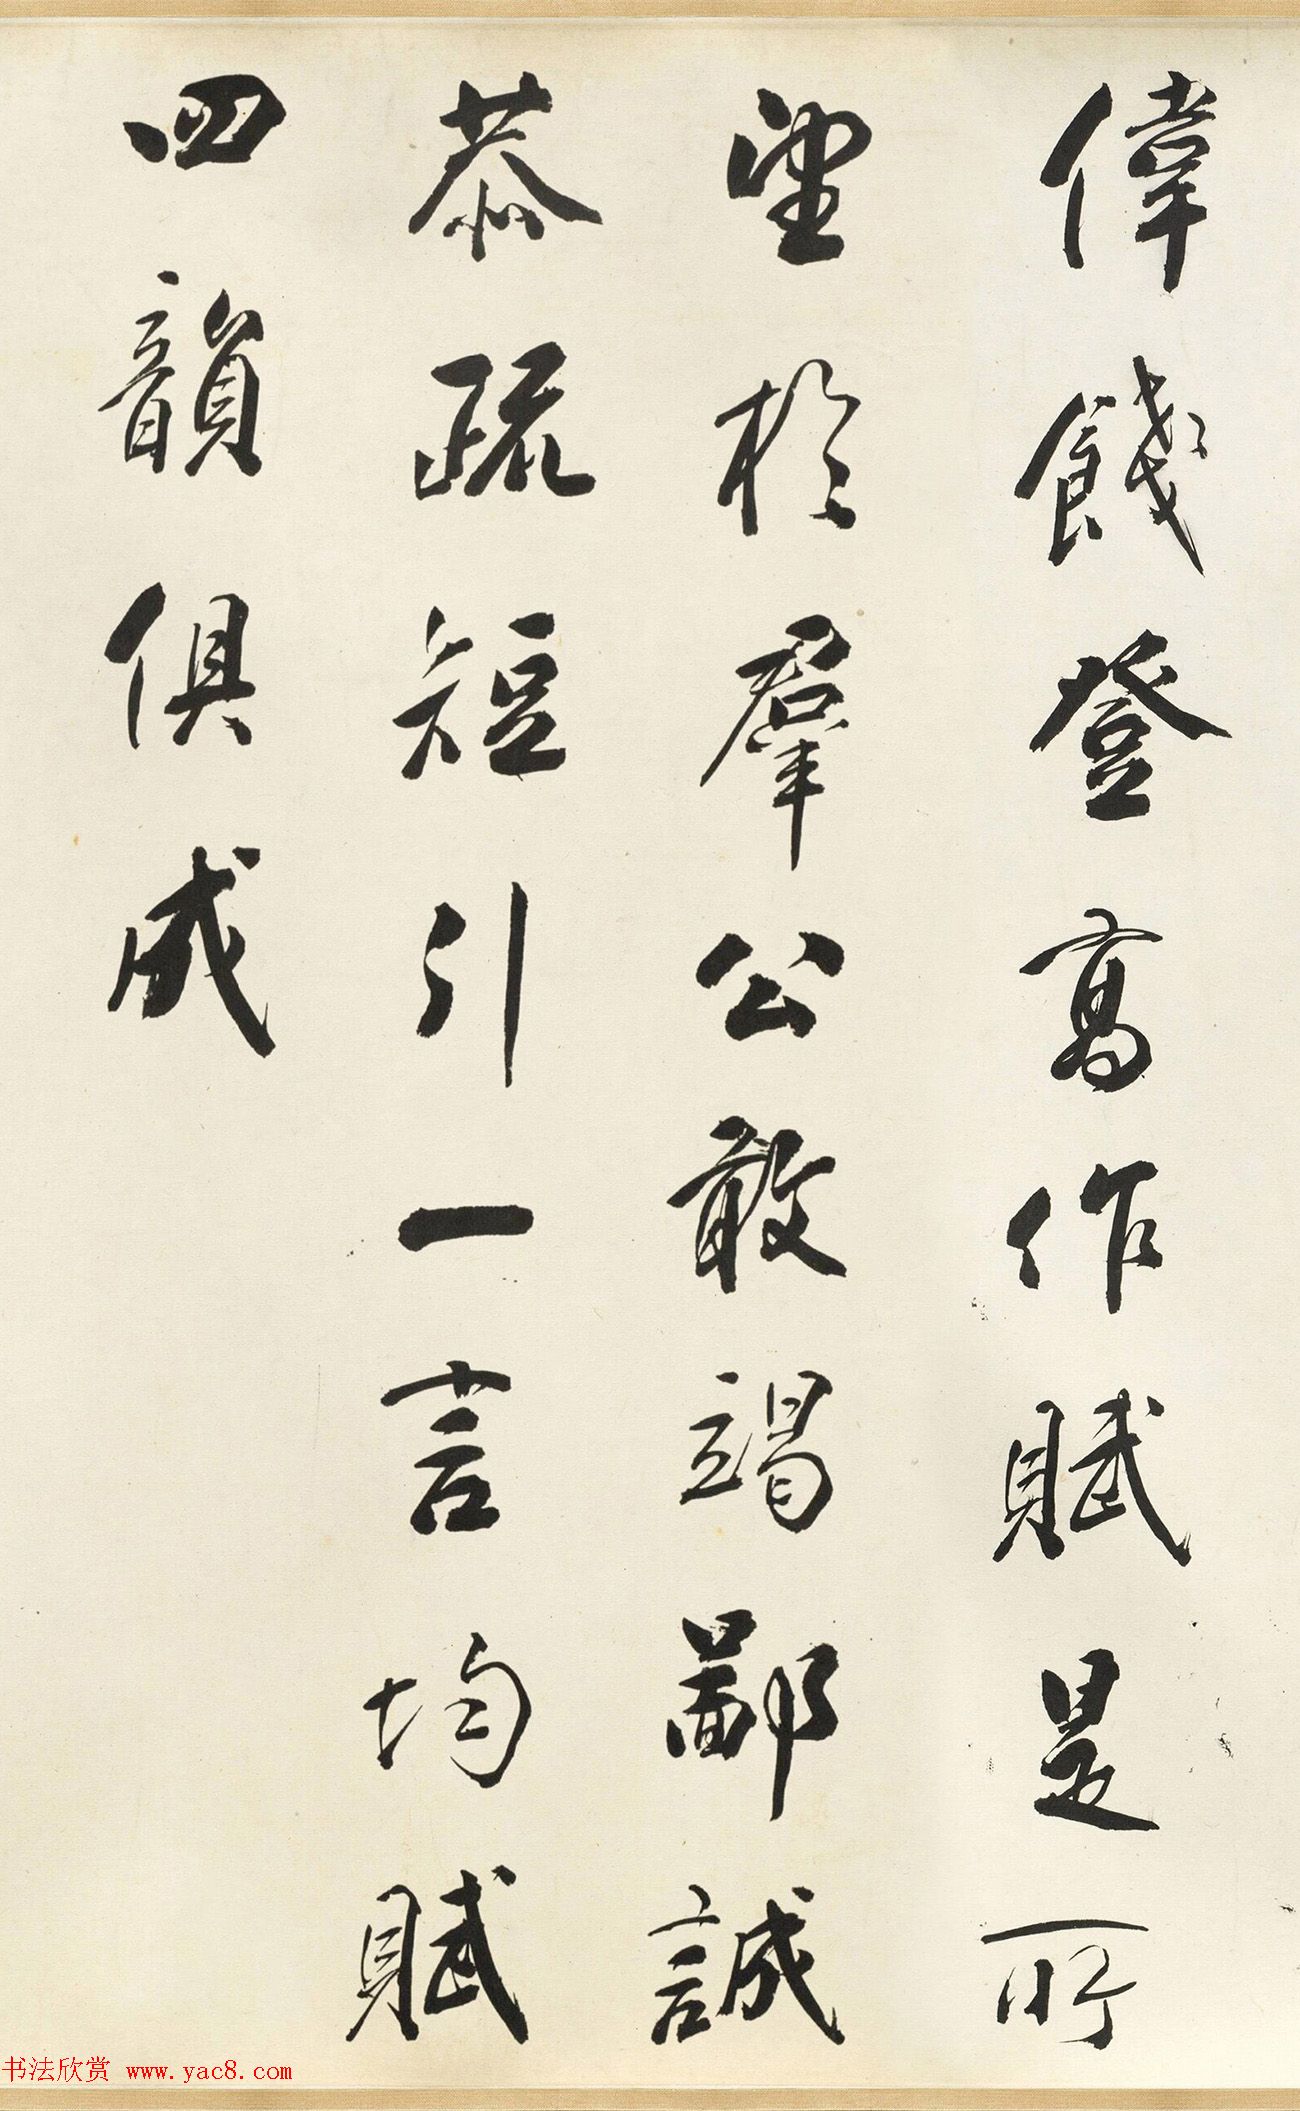 偉餞登高作賦是所
望於羣公敢竭鄙誠
恭疏短引一言均賦
四韻俱成
书法欣赏 www.yac8.com